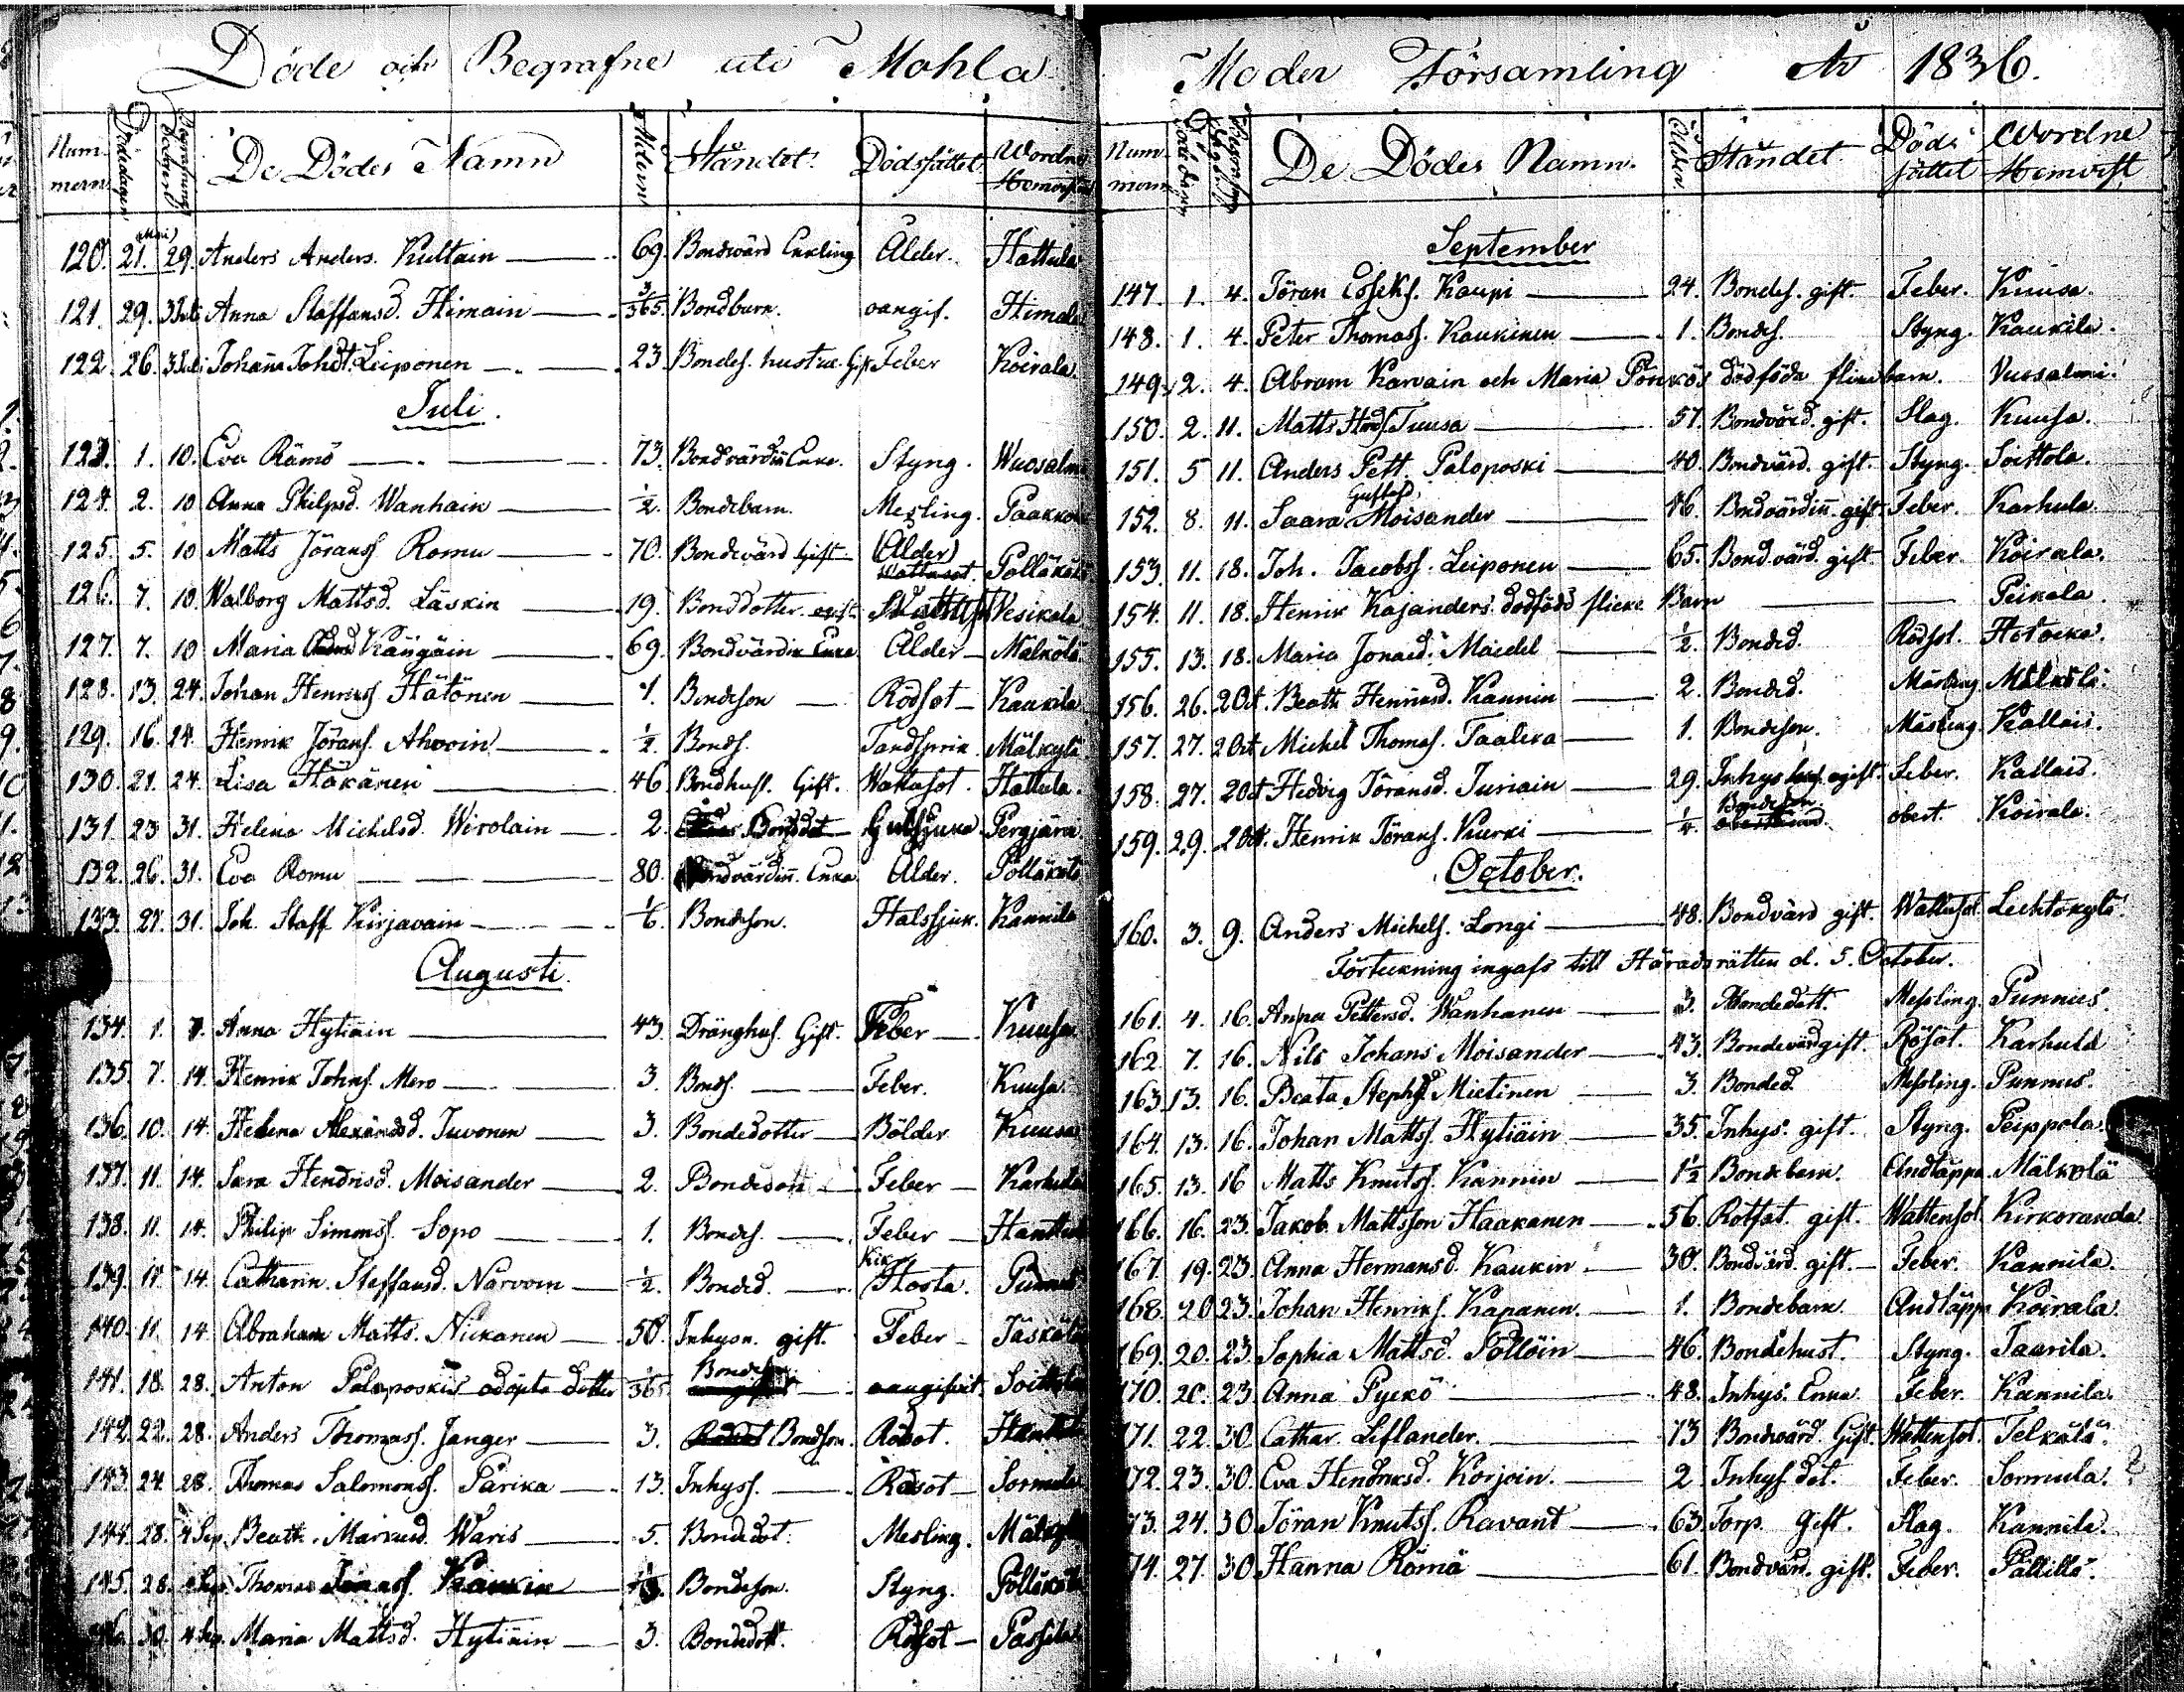 Döde och Begrafne uti Mohla
Nummern Dödedagen Begrafnings De Dödes Namn Åldern Ståndet Dödssättet Wordne Hemvist
120. 21. 29. Anders Anders. Kultain 69. Bondvärd Enkling Ålder. Hattula
121. 29. 3 Juli Anna Staffansd. Himain 3/365 Bondbarn. oangif. Himala
122. 26. 3 Juli Johanna Leiponen 23 Bondes. hustru. Feber Koirala.
Juli.
123. 1. 10. Eva Rämö 73. Bondvärdin Enke. Styng. Wuosalm
124. 2. 10 Anna Philpsd. Wanhain 1/2. Bondebarn. Mesling. Paakko
125. 5. 10 Matts Jöranss. Romu 70. Bondevärd Gift (Ålder) Pölläkälä
126. 7. 10 Walborg Mattsd. Läskin 19. Bonddotter Wattusot Vesikala
127. 7. 10 Maria Kängäin 69. Bondvärdin Enke Ålder Mälkölä
128. 13. 24. Johan Henrikss Hätönen 1. Bondeson Rödsot Kaukila
129. 16. 24. Henrik Jöranss. Ahvoin 1/2. Bonds. Tandsprik. Mälkylä
130. 21. 24. Lisa Häkänen 46 Bondhust. Gift. Wattusot. Hattula.
131. 23 31. Helena Michelsd. Wirolain 2. Bondsdot Gulsjuka Pergjärv
132. 26. 31. Eva Romu 80. Bondvärdin. Enka Ålder. Pölläkälä
133. 27. 31. Joh. Staff Kirjavain 1/6. Bondeson. Halssjuk. Kannila
Augusti.
134. 1. 7. Anna Hytiäin 43. Dränghus. Gift. Feber Kuusa
135. 7. 14. Henrik Johns. Mero 3. Bonds. Feber. Kuusa.
136. 10. 14. Helena Alexandsd. Juvonen 3. Bondedotter Bölder Kuusa
137. 11. 14. Sara Hendrisd. Moisander 2. Bondedott Feber Karhula
138. 11. 14. Philip Simmons. Sopo 1. Bondes. Feber
139. 11. 14. Catharin. Staffansd. Närvoin 1/2. Bonded. Kik Hosta. Punnus
140. 11. 14. Abraham Matts. Nickanen 50. Inhysn. gift. Feber Jäskälä
141. 18. 28. Anton Paloposkis adopta dotter 1/365 oangifvit. Soittola
142. 22. 28. Anders Thomass. Janger 3. Bondson. Rödsot.
143. 24. 28. Thomas Salomonss. Pärika 13. Inhyss. Rödsot Sormula
144. 28. 4 Sep. Beath. Markusd. Waris 5. Bondedot. Mesling. Mälkylä
145. 28. 4 Sep. Thomas Jöranss. Bondeson. Styng. Pölläkälä
146. 30. 4 Sep. Maria Mattsd. Hytiäin 3. Bondedott. Rödsot Passila
Moder Församling År 1836.
Nummern Dödedagen De Dödes Namn. Ålder Ståndet Dödssättet Wordne Hemvist
September
147. 1. 4. Jöran Eskels. Kaupi 24. Bondes. gift. Feber. Kuusa.
148. 1. 4. Peter Thomass. Kaukinen 1. Bondes. Styng. Kaukila.
149. 2. 4. Abram Karvain och Maria Pönkös dödföda flickebarn. Vuosalmi.
150. 2. 11. Matts Tuusa 57. Bondvärd. gift. Slag. Kuusa.
151. 5 11. Anders Pett. Paloposki 40. Bondvärd. gift. Styng. Soittola.
152. 8. 11. Saara Gustafs. Moisander 46. Bondvärdin. gift. Feber. Karhula.
153. 11. 18. Joh. Jacobss. Leiponen 65. Bondvärd. gift. Feber. Koirala.
154. 11. 18. Henrik Kajanders dödföd flicke Barn Peikola.
155. 13. 18. Maria Jonaed. Maedel 1/2. Bonded. Rödsot. Hotocka.
156. 26. 2 Oct. Beath Henriksd. Kannin 2. Bonded. Mäsling Mälkölä.
157. 27. 2 Oct Michel Thomas. Taaleka 1. Bondeson. Mäsling. Kallais.
158. 27. 2 Oct Hedvig Töransd. Juriain 29. Inhys ogift. Feber. Kallais.
159. 29. 2 Oct. Henrik Jöranss. Kurki 1/4. Bondeson. obest. Koirala.
October.
160. 3. 9. Anders Michels. Longi 48. Bondvärd gift. Wattusot Lechtokylä.
Förteckning ingafs till Häradsrätten d. 5. October.
161. 4. 16. Anna Pettersd. Wanhanen 3. Bondedott. Messling. Punnus.
162. 7. 16. Nils Johans Moisander 43. Bondevärd gift. Rösot. Karhula
163. 13. 16. Beata Stephsd. Mietinen 3. Bonded. Messling. Punnus.
164. 13. 16. Johan Mattss. Hytiäin 35. Inhys. gift. Styng. Peippola.
165. 13. 16 Matts Knutss. Kannin 1 1/2 Bondebarn. Andtäppa Mälkölä
166. 16. 23. Jakob Mattsson Haakanen 56. Rotfat. gift. Wattensot Kirkoranda
167. 19. 23. Anna Hermansd. Kaukin 30. Bondvärd. gift. Feber. Kannila.
168. 20 23. Johan Henriks. Kapanen. 1. Bondebarn Andtäppa Koirala.
169. 20. 23 Sophia Mattsd. Pöllöin 46. Bondehust. Styng. Taurila.
170. 20. 23 Anna Pyckö 48. Inhys. Enka Feber. Kannila.
171. 22. 30 Cathar. Liflander. 73 Bondvärd. Gift. Wattensot. Telkälä.
172. 23. 30. Eva Hendriksd. Korjoin. 2 Inhys dot. Feber. Sormula.
173. 24. 30 Jöran Knutss. Ravant 63. Torp. Gift. Slag. Kannila.
174. 27. 30 Hanna Römä 61. Bondvärd. gift. Feber. Pällilä.